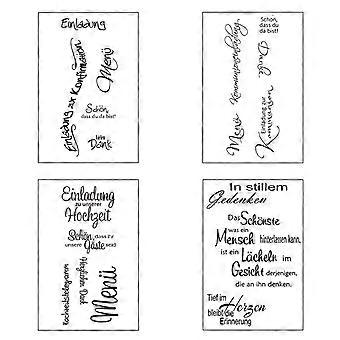 Einladung
Einladung zur Konfirmation
Menü
Schön,
dass du da bist!
Dank
Schön,
dass du da bist!
Menü
Kommunionseinladung
Danke
Einladung zur
Kommunion
Einladung
zu unserer
Hochzeit
Schön, dass ihr
unsere Gäste seid
Hochzeitstelegramm
Herzlichen Dank
Menü
In stillem
Gedenken
Das Schönste
was ein
Mensch hinterlassen kann,
ist ein
Lächeln im
Gesicht derjenigen,
die an ihn denken.
Tief im
Herzen
bleibt die
Erinnerung